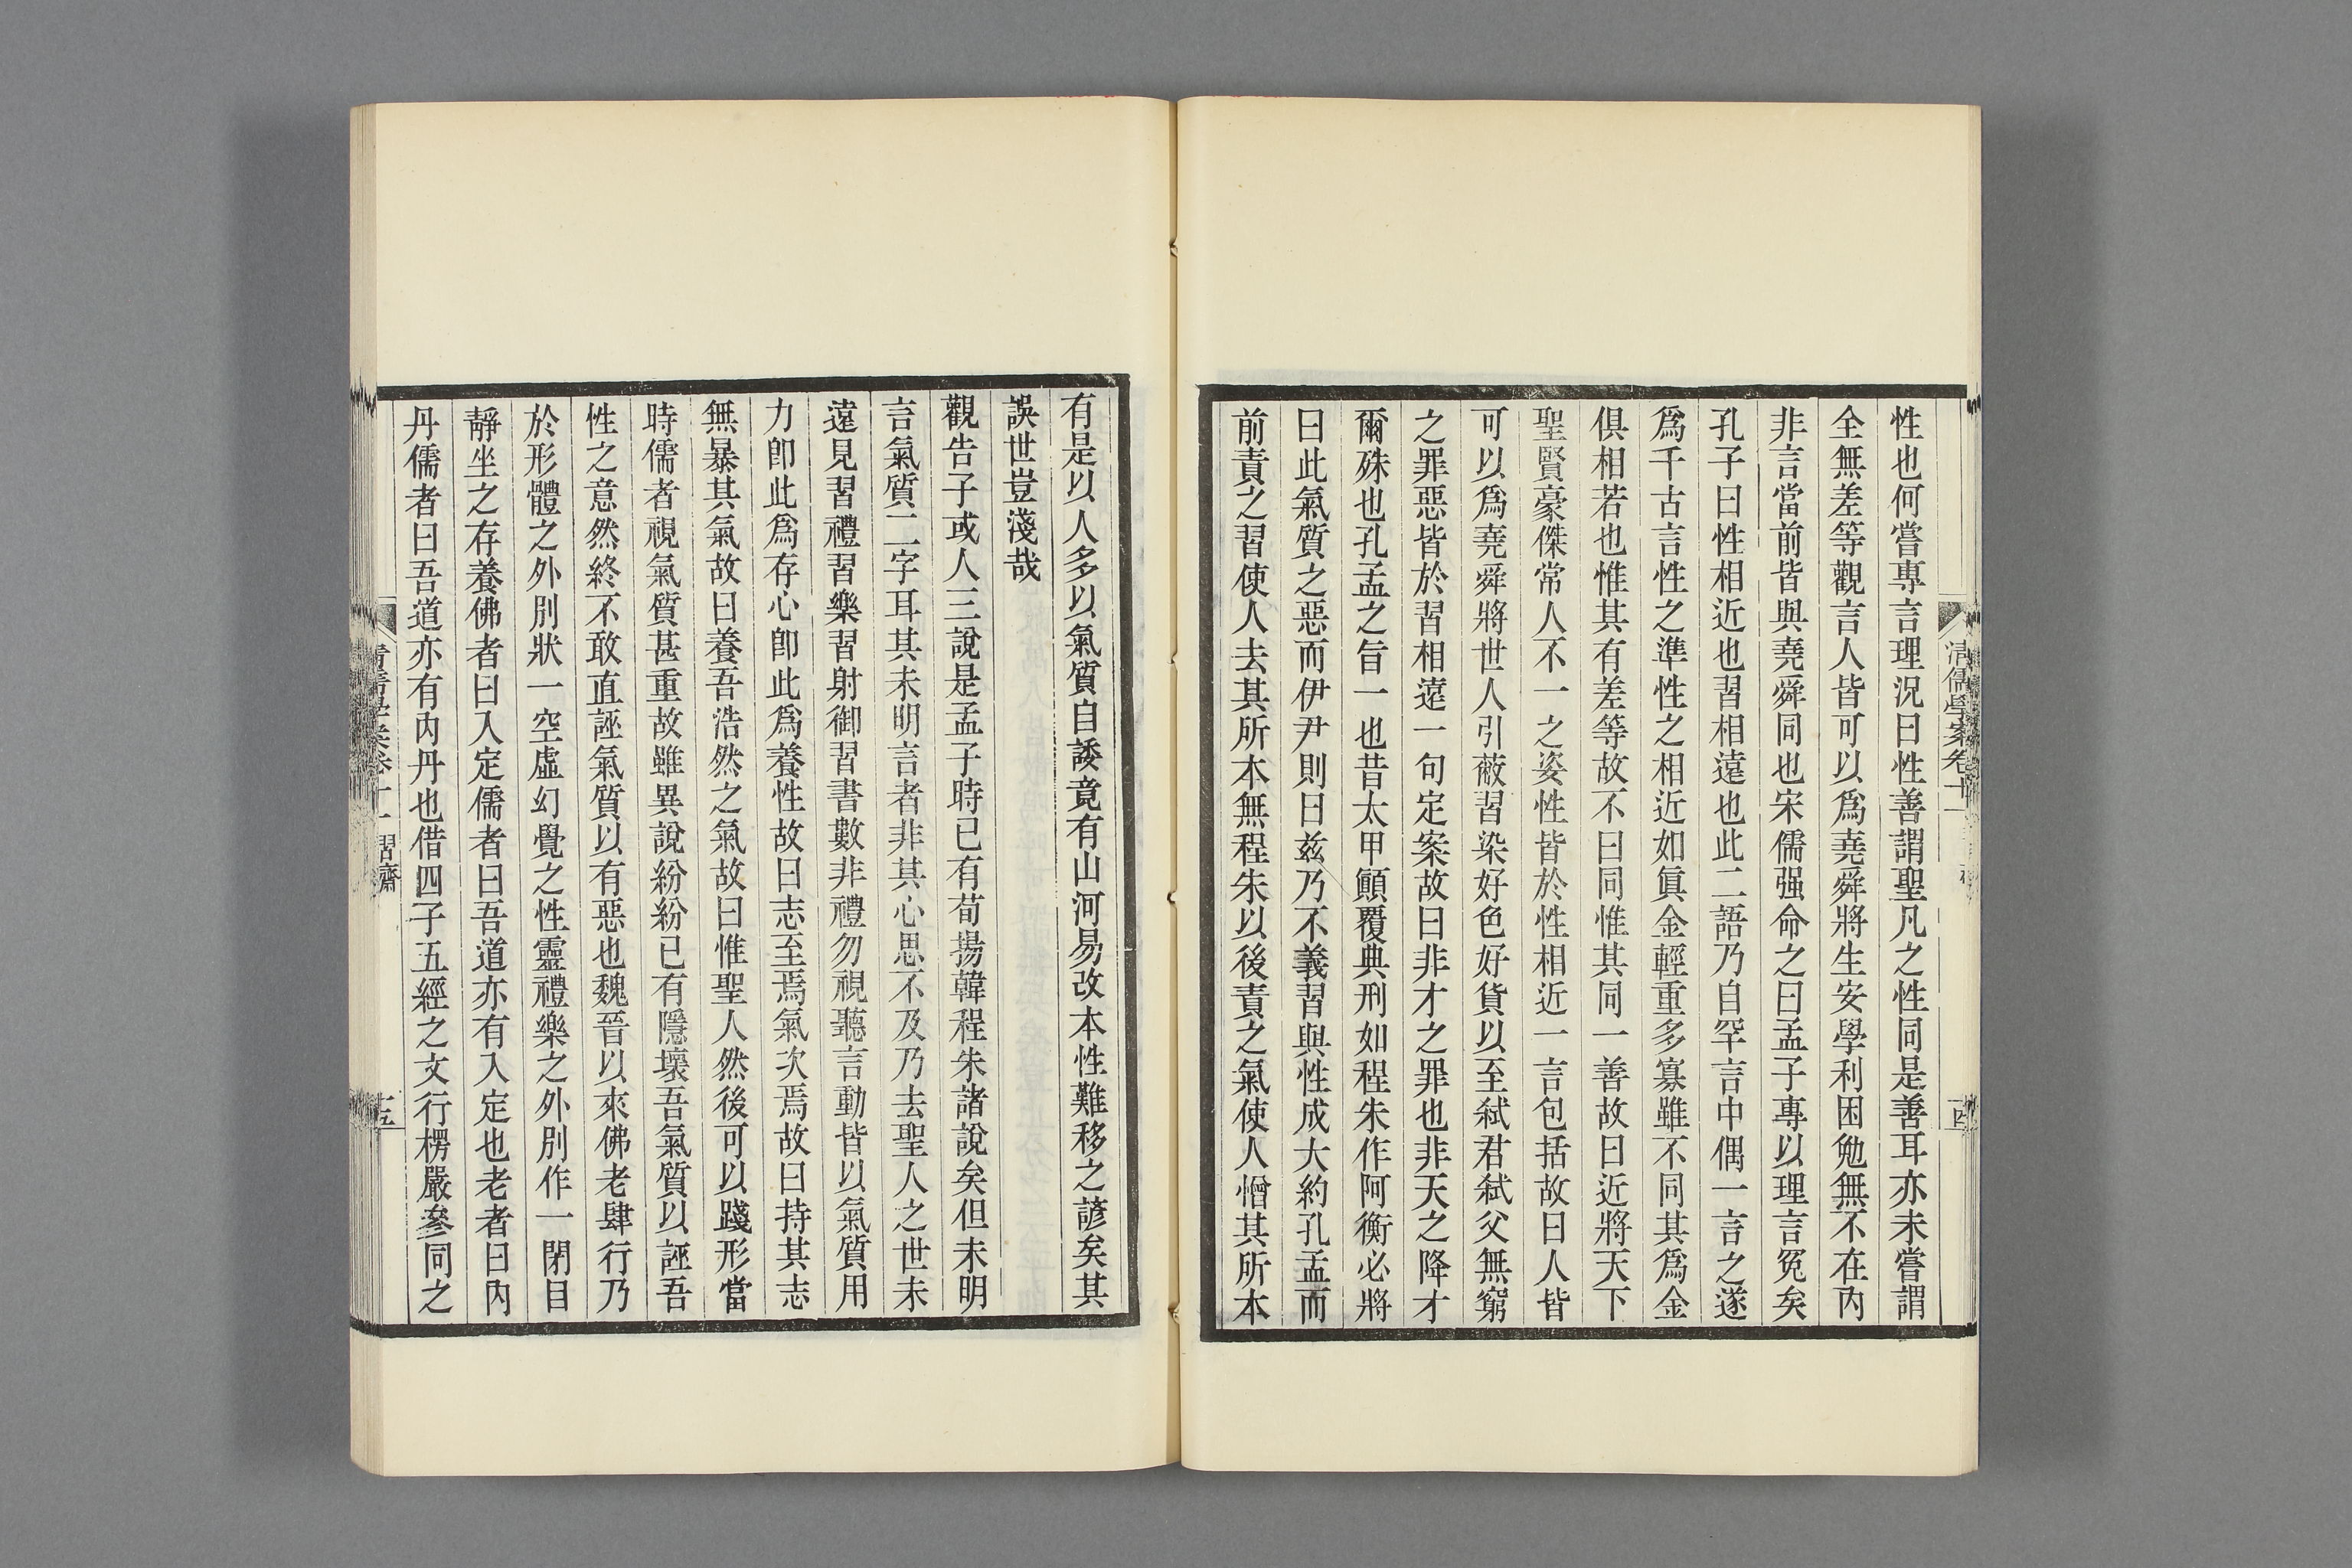 清儒學案卷十一
十四
性也何嘗專言理況曰性善謂聖凡之性同是善耳亦未嘗謂
全無差等觀言人皆可以爲堯舜將生安學利困勉無不在內
非言當前皆與堯舜同也宋儒强命之曰孟子專以理言冤矣
孔子曰性相近也習相遠也此二語乃自罕言中偶一言之遂
爲千古言性之準性之相近如眞金輕重多寡雖不同其爲金
俱相若也惟其有差等故不曰同惟其同一善故曰近將天下
聖賢豪傑常人不一之姿性皆於性相近一言包括故曰人皆
可以爲堯舜將世人引蔽習染好色好貨以至弑君弑父無窮
之罪惡皆於習相遠一句定案故曰非才之罪也非天之降才
爾殊也孔孟之旨一也昔太甲顚覆典刑如程朱作阿衡必將
曰此氣質之惡而伊尹則曰兹乃不義習與性成大約孔孟而
前責之習使人去其所本無程朱以後責之氣使人憎其所本
有是以人多以氣質自諉竟有山河易改本性難移之諺矣其
誤世豈淺哉
觀告子或人三說是孟子時已有荀揚韓程朱諸說矣但未明
言氣質二字耳其未明言者非其心思不及乃去聖人之世未
遠見習禮習樂習射御習書數非禮勿視聽言動皆以氣質用
力卽此爲存心卽此爲養性故曰志至焉氣次焉故曰持其志
無暴其氣故曰養吾浩然之氣故曰惟聖人然後可以踐形當
時儒者視氣質甚重故雖異說紛紛已有隱壞吾氣質以誣吾
性之意然終不敢直誣氣質以有惡也魏晉以來佛老肆行乃
於形體之外別狀一空虛幻覺之性靈禮樂之外別作一閉目
靜坐之存養佛者曰入定儒者曰吾道亦有入定也老者曰內
丹儒者曰吾道亦有內丹也借四子五經之文行楞嚴參同之
習齋
十五